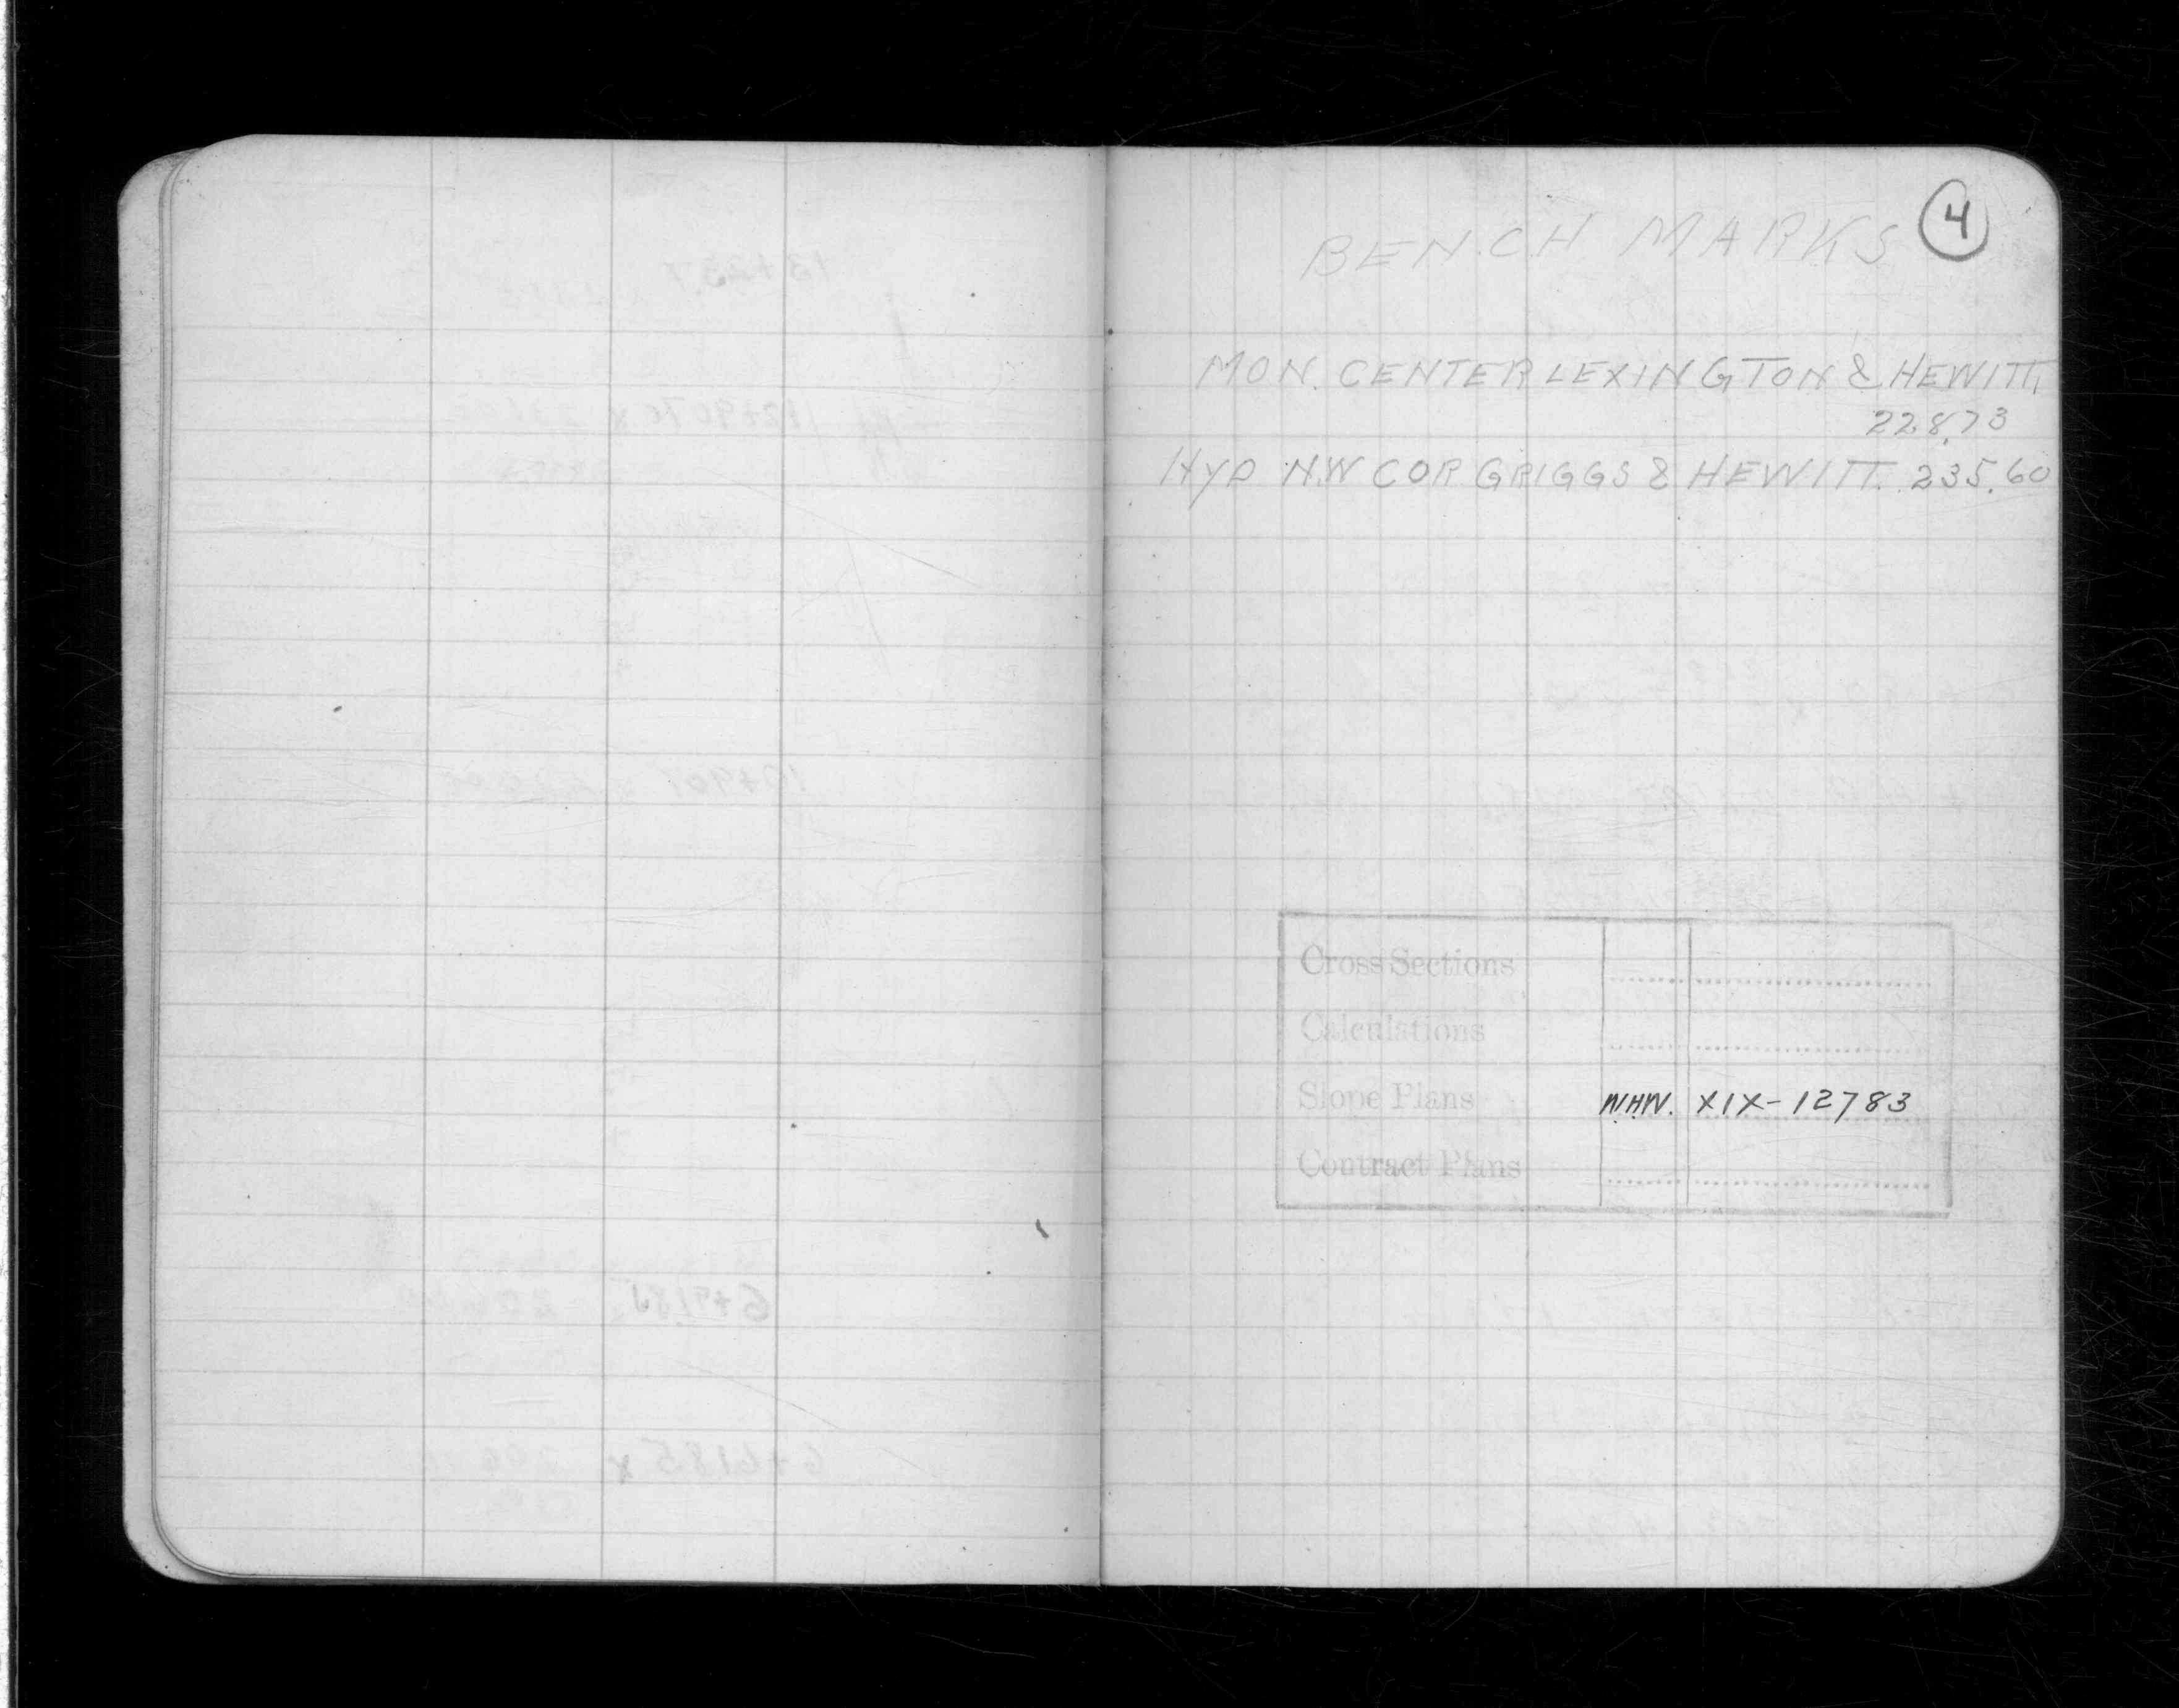 4
BENCH MARKS
MON. CENTER LEXINGTON & HEWITT,
228.73
HYD N.W COR GRIGGS & HEWITT. 235.60
Cross Sections
Calculations
Slope Plans W.H.W. XIX-12783
Contract Plans